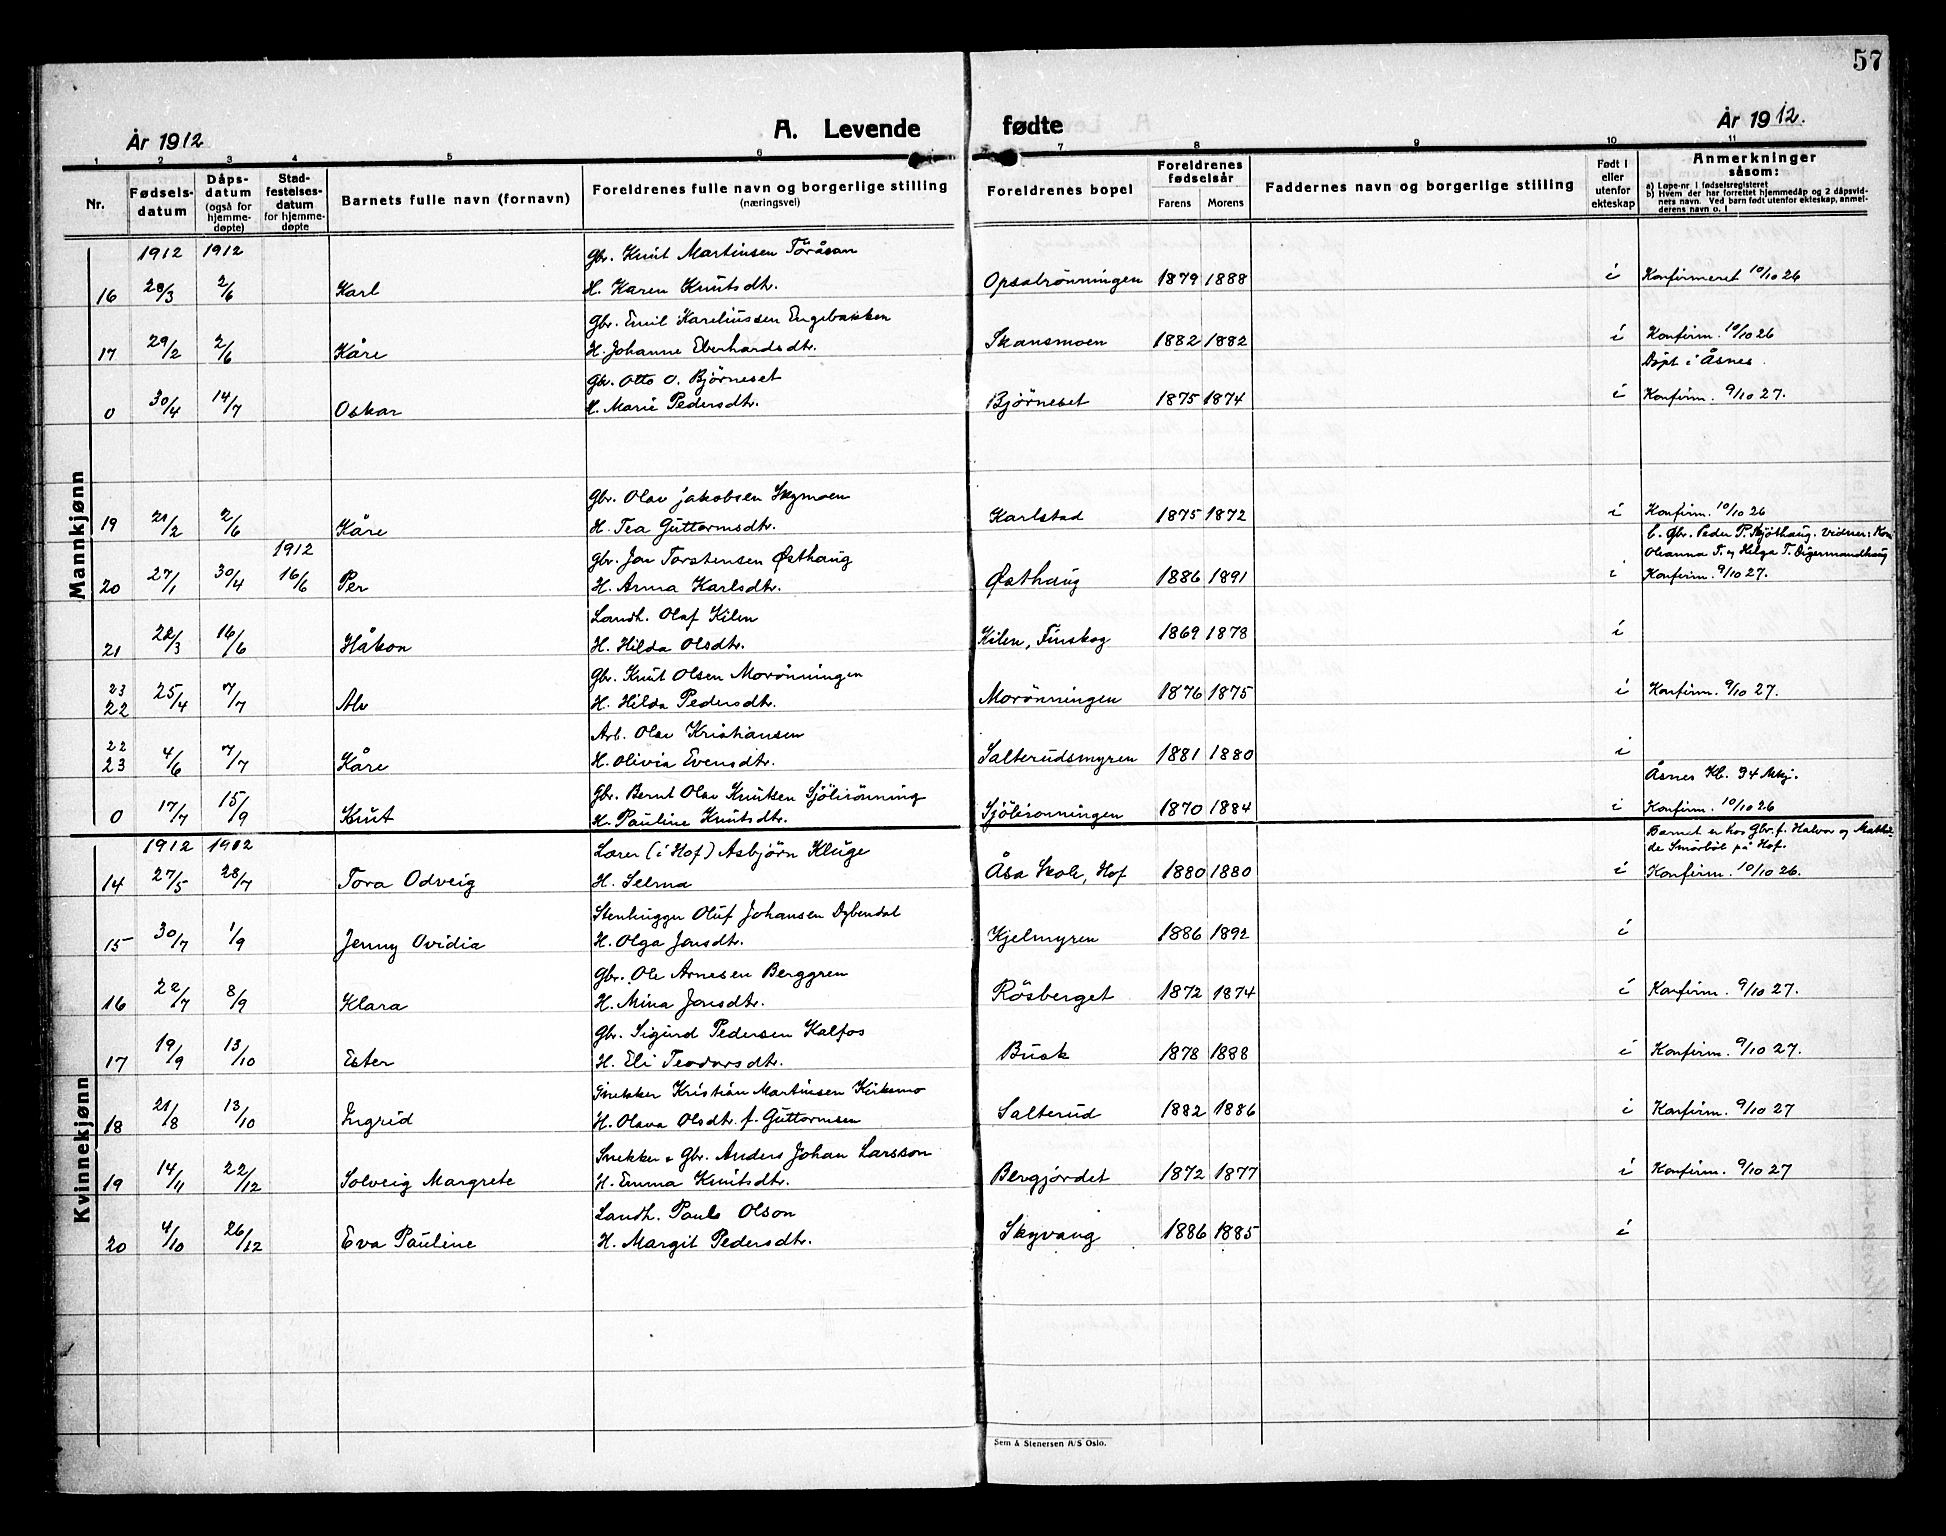 57
År 1912 A. Levende fødte År 1912.
1 2 3 4 5 6 7 8 9 10 11
Nr. Fødsels-datum Dåps-datum (også for hjemme-døpte) Stad-festelses-datum for hjemme-døpte Barnets fulle navn (fornavn) Foreldrenes fulle navn og borgerlige stilling (næringsvei) Foreldrenes bopel Foreldrenes fødselsår Farens Morens Faddernes navn og borgerlige stilling Født i eller utenfor ekteskap Anmerkninger såsom:
a) Løpe-nr. i fødselsregisteret
b) Hvem der har forrettet hjemmedåp og 2 dåpsvid-
ners navn. Ved barn født utenfor ekteskap, anmel-
derens navn o. l
Mannkjønn
1912 1912 Gbr. Knut Martinsen Töråsan
16 28/3 2/6 Karl H. Karen Knutsdtr. Opsalrönningen 1879 1888 i Konfirmeret 10/10 26
Gbr. Emil Kareliussen Engebakken
17 29/2 2/6 Kåre H. Johanne Eberhardsdtr. Skansmoen 1882 1882 i Konfirm. 10/10 26
Döpt i Åsnes.
Gbr. Otto O. Björneset
0 30/4 14/7 Oskar H. Marie Pedersdtr. Björneset 1875 1874 i Konfirm. 9/10 27.
Gbr. Olav Jakobsen Skymoen
19 21/2 2/6 Kåre H. Tea Guttormsdtr. Karlstad 1875 1872 i Konfirm. 10/10 26
E. Gbr. Peder P. Skjöthaug. Vidner:
Oleanna T. og Helga T. Digermandhaug
1912 Gbr. Jon Torstensen Østhaug
20 27/1 30/4 16/6 Per H. Anna Karlsdtr. Østhaug 1886 1891 i Konfirm. 9/10 27.
Landh. Olaf Kilen
21 22/3 16/6 Håkon H. Hilda Olsdtr. Kilen, Finskog 1869 1878 i
Gbr. Knut Olsen Morönningen
23
22 25/4 7/7 Alv H. Hilda Pedersdtr. Morönningen 1876 1875 i Konfirm. 9/10 27.
Arb. Olav Kristiansen
22
23 4/6 7/7 Kåre H. Olivia Evensdtr. Salterudsmyren 1881 1880 i
Åsnes Kl. 34 Mkj.
Gbr. Bernt Olav Knutsen Sjölirönning
0 17/7 15/9 Knut H. Pauline Knutsdtr. Sjölirönningen 1870 1884 i Konfirm. 10/10 26
Kvinnekjønn
Barnet er hos Gbr. f. Halvor og Mathil-
de Smörböl på Hof.
1912 1912 Lærer (i Hof) Asbjörn Kluge
14 27/5 28/7 Tora Odveig H. Selma Åsa Skole, Hof 1880 1880 i Konfirm. 10/10 26.
Stenhugger Oluf Johansen Dybendal
15 30/7 1/9 Jenny Ovidia H. Olga Jonsdtr. Kjelmyren 1886 1892 i
Gbr. Ole Arnesen Berggren
16 22/7 8/9 Klara H. Mina Jonsdtr. Rösberget 1872 1874 i Konfirm. 9/10 27.
Gbr. Sigurd Pedersen Kalfos
17 19/9 13/10 Ester H. Eli Teodorsdtr. Busk 1878 1888 i Konfirm. 9/10 27.
Snekker Kristian Martinsen Kirksmo
18 21/8 13/10 Ingrid H. Olava Olsdtr. f. Guttormsen Salterud 1882 1886 i Konfirm. 9/10 27
Snekker & Gbr. Anders Johan Larsson
19 14/11 22/12 Solveig Margrete H. Emma Knutsdtr. Bergjordet 1872 1877 i Konfirm. 9/10 27
Landh. Paul Olson
20 4/10 26/12 Eva Pauline H. Margit Pedersdtr. Skyvang 1886 1885 i
Sem & Stenersen A/S Oslo.